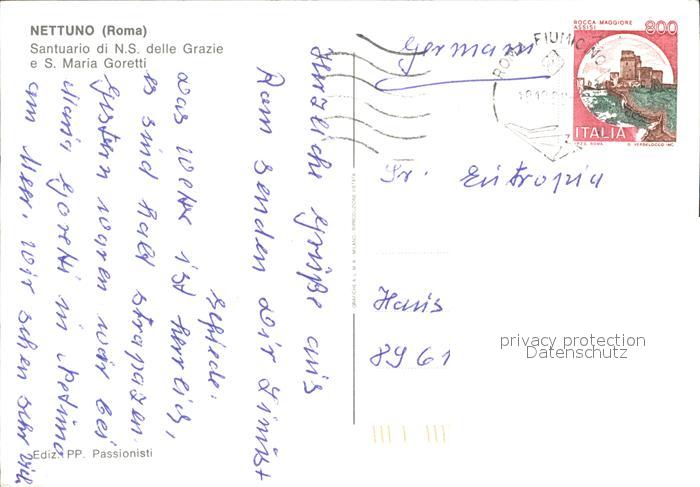 NETTUNO (Roma)
Santuario di N.S. delle Grazie
e S. Maria Goretti
Herzliche Grüße aus
Rom senden Dir
Das Wetter ist herrlich,
es sind halt strapazen
Gestern waren wir bei
Maria Goretti in Netuno
am Meer. Wir sehen sehr viel
Ediz. PP. Passionisti
GRAFICHE A.L.M.A. MILANO RIPRODUZIONE VIETATA
Germani
ROMA FIUMICINO
ROCCA MAGGIORE
ASSISI
800
ITALIA
I.P.Z.S. ROMA
Sr. Eutropia
Haus
8961
privacy protection
Datenschutz